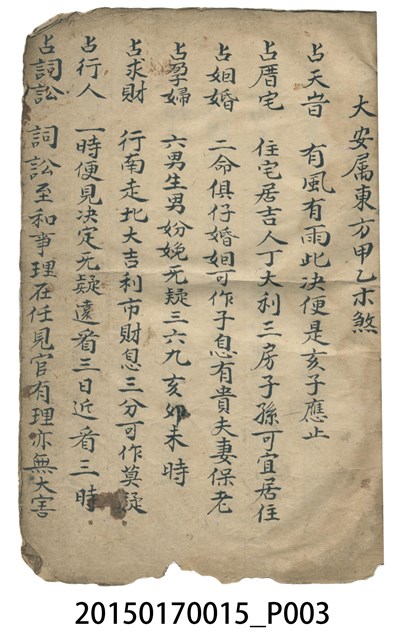 大安属東方甲乙木煞
占天音 有風有雨此决便是亥子應止
占厝宅 住宅居吉人丁大利三房子孫可宜居住
占姻婚 二命俱仔婚姻可作子息有貴夫妻保老
占孕婦 六男生男妢娩无疑三六九亥卯未時
占求財 行南走北大吉利市財息三分可作莫疑
占行人 一時便見决定无疑遠看三日近看三時
占詞訟 詞訟至和爭理在任見官有理亦無大害
20150170015_P003